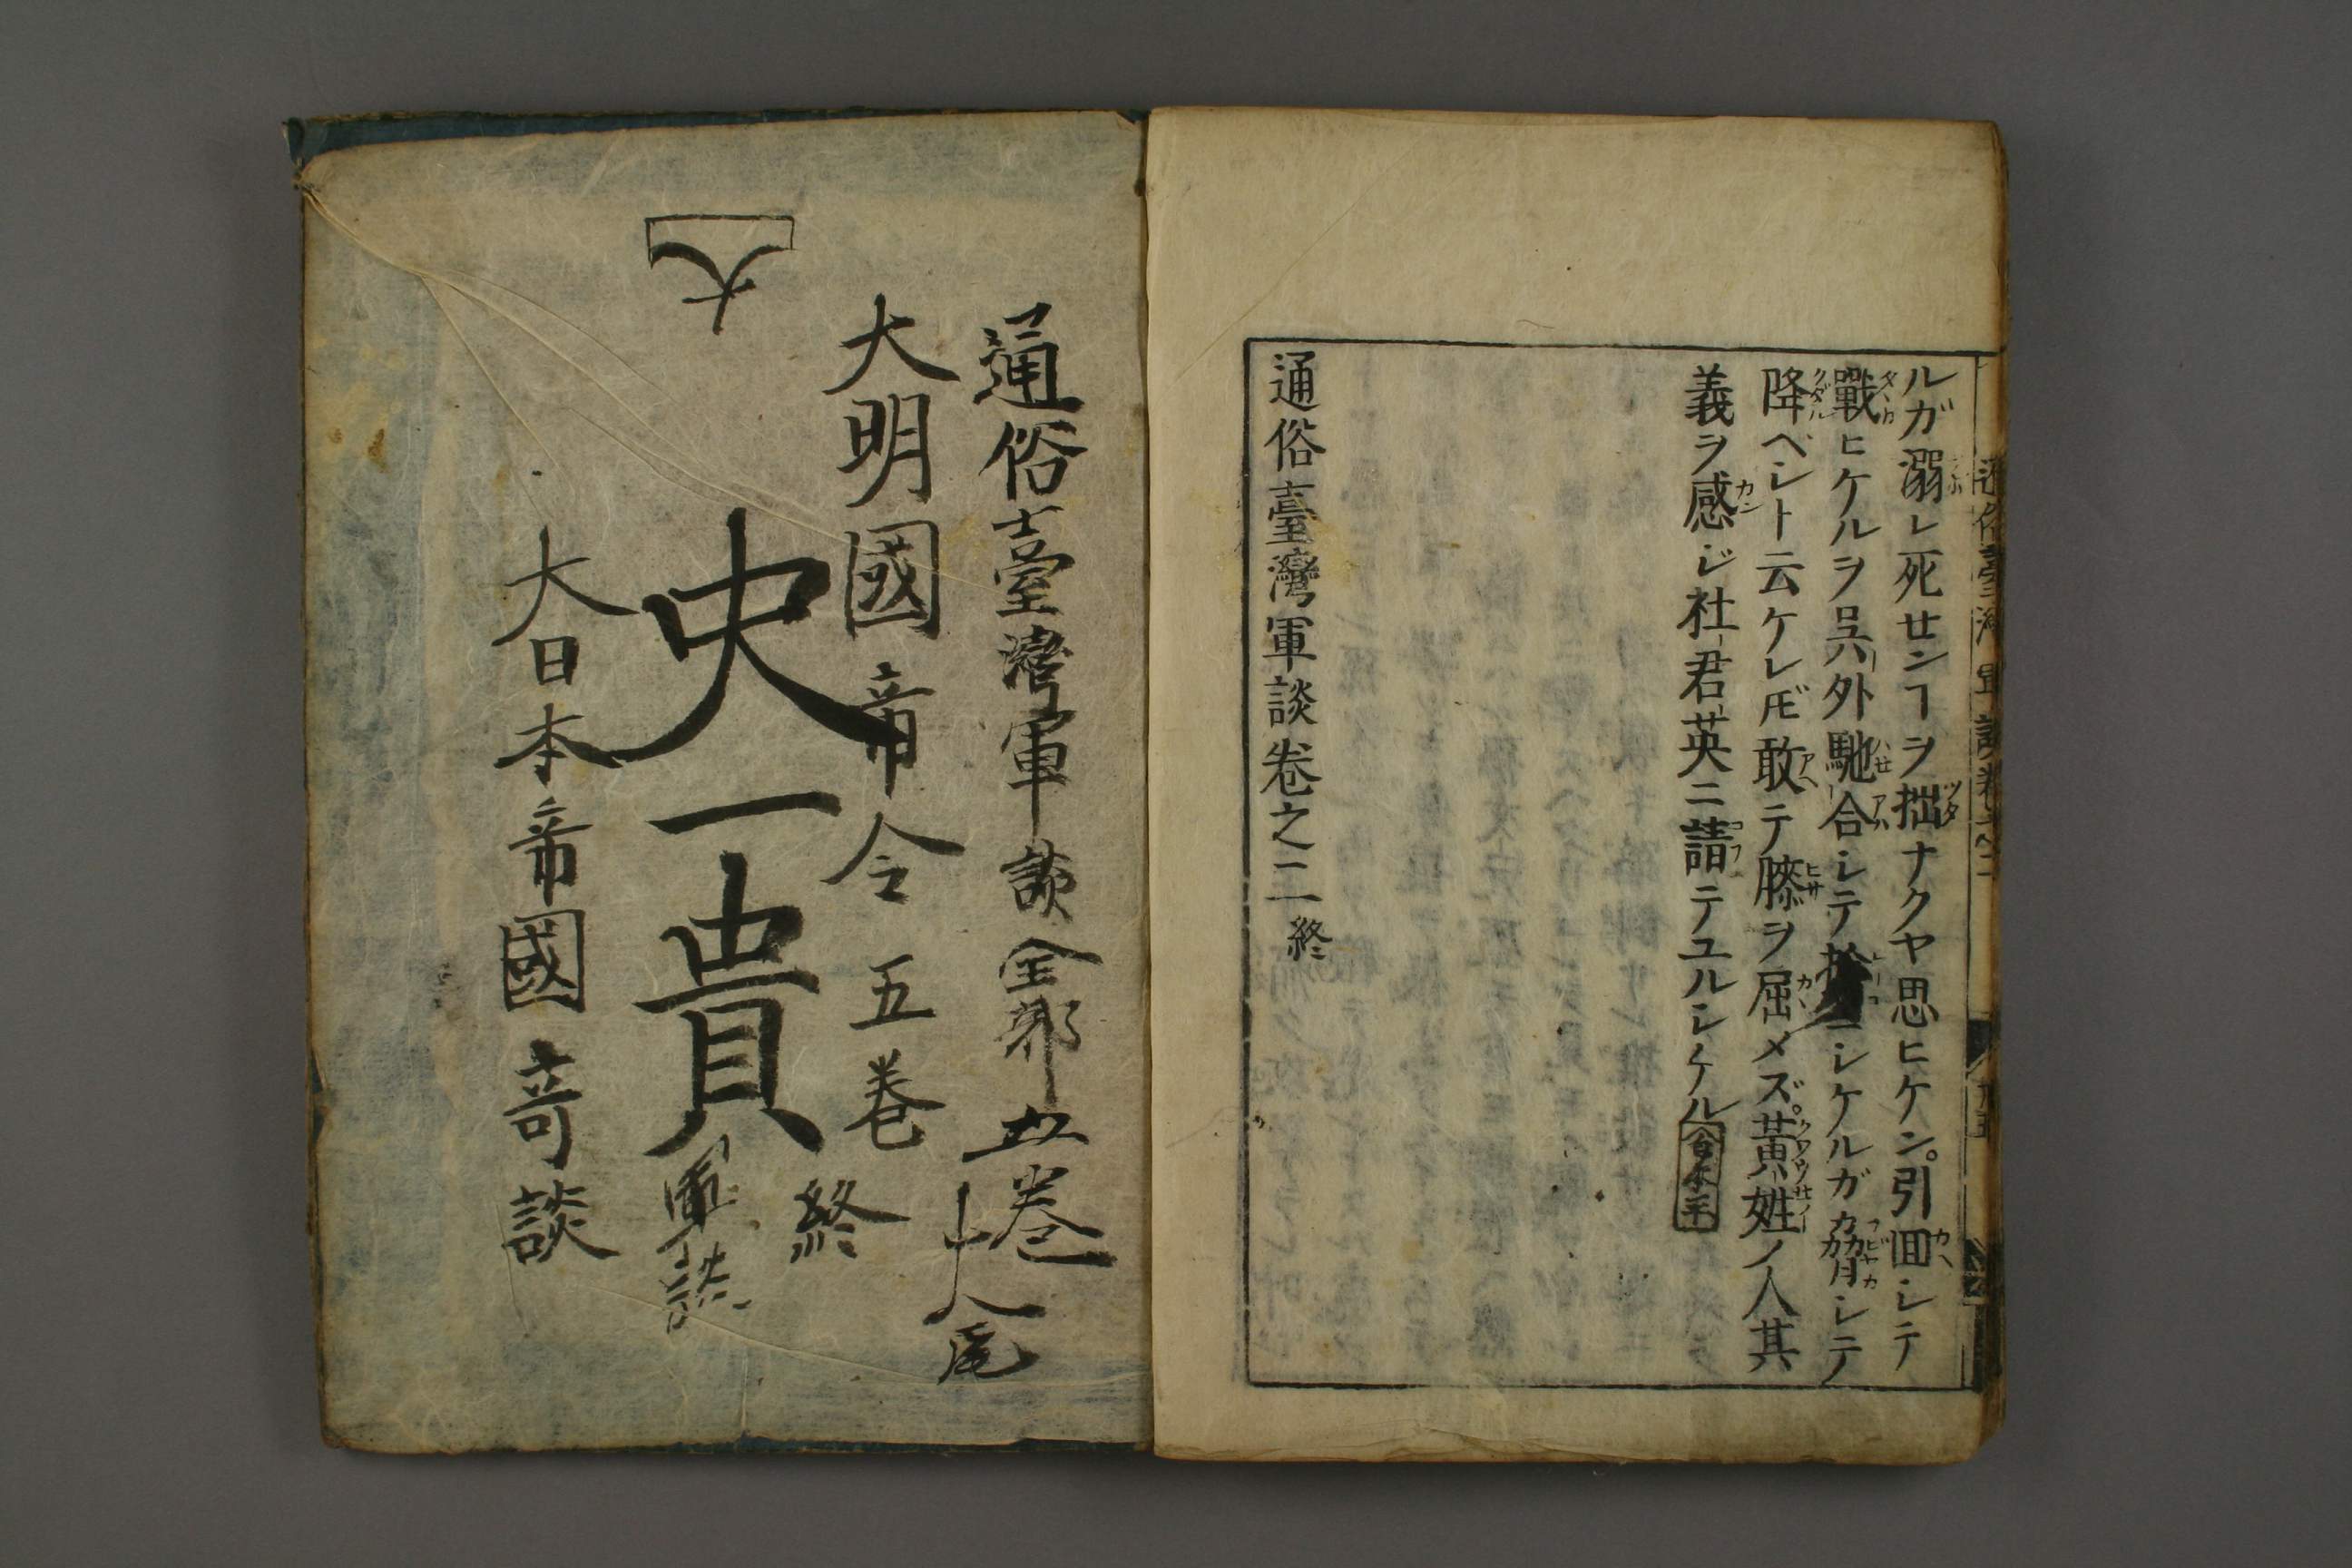 ルガ溺レ死センヿヲ拙ナクヤ思ヒケン引回シテ
戰ヒケルヲ呉外馳合シテ シケルガ脅シテ
降ベシト云ケレ𪜈敢テ膝ヲ屈メズ黄姓ノ人其
義ヲ感ジ社君英ニ請テユルシケル
通俗臺灣軍談卷之二終
通俗臺灣軍談全部五卷
大明國帝令五巻終
史一貴
軍談
大日本帝國奇談
大